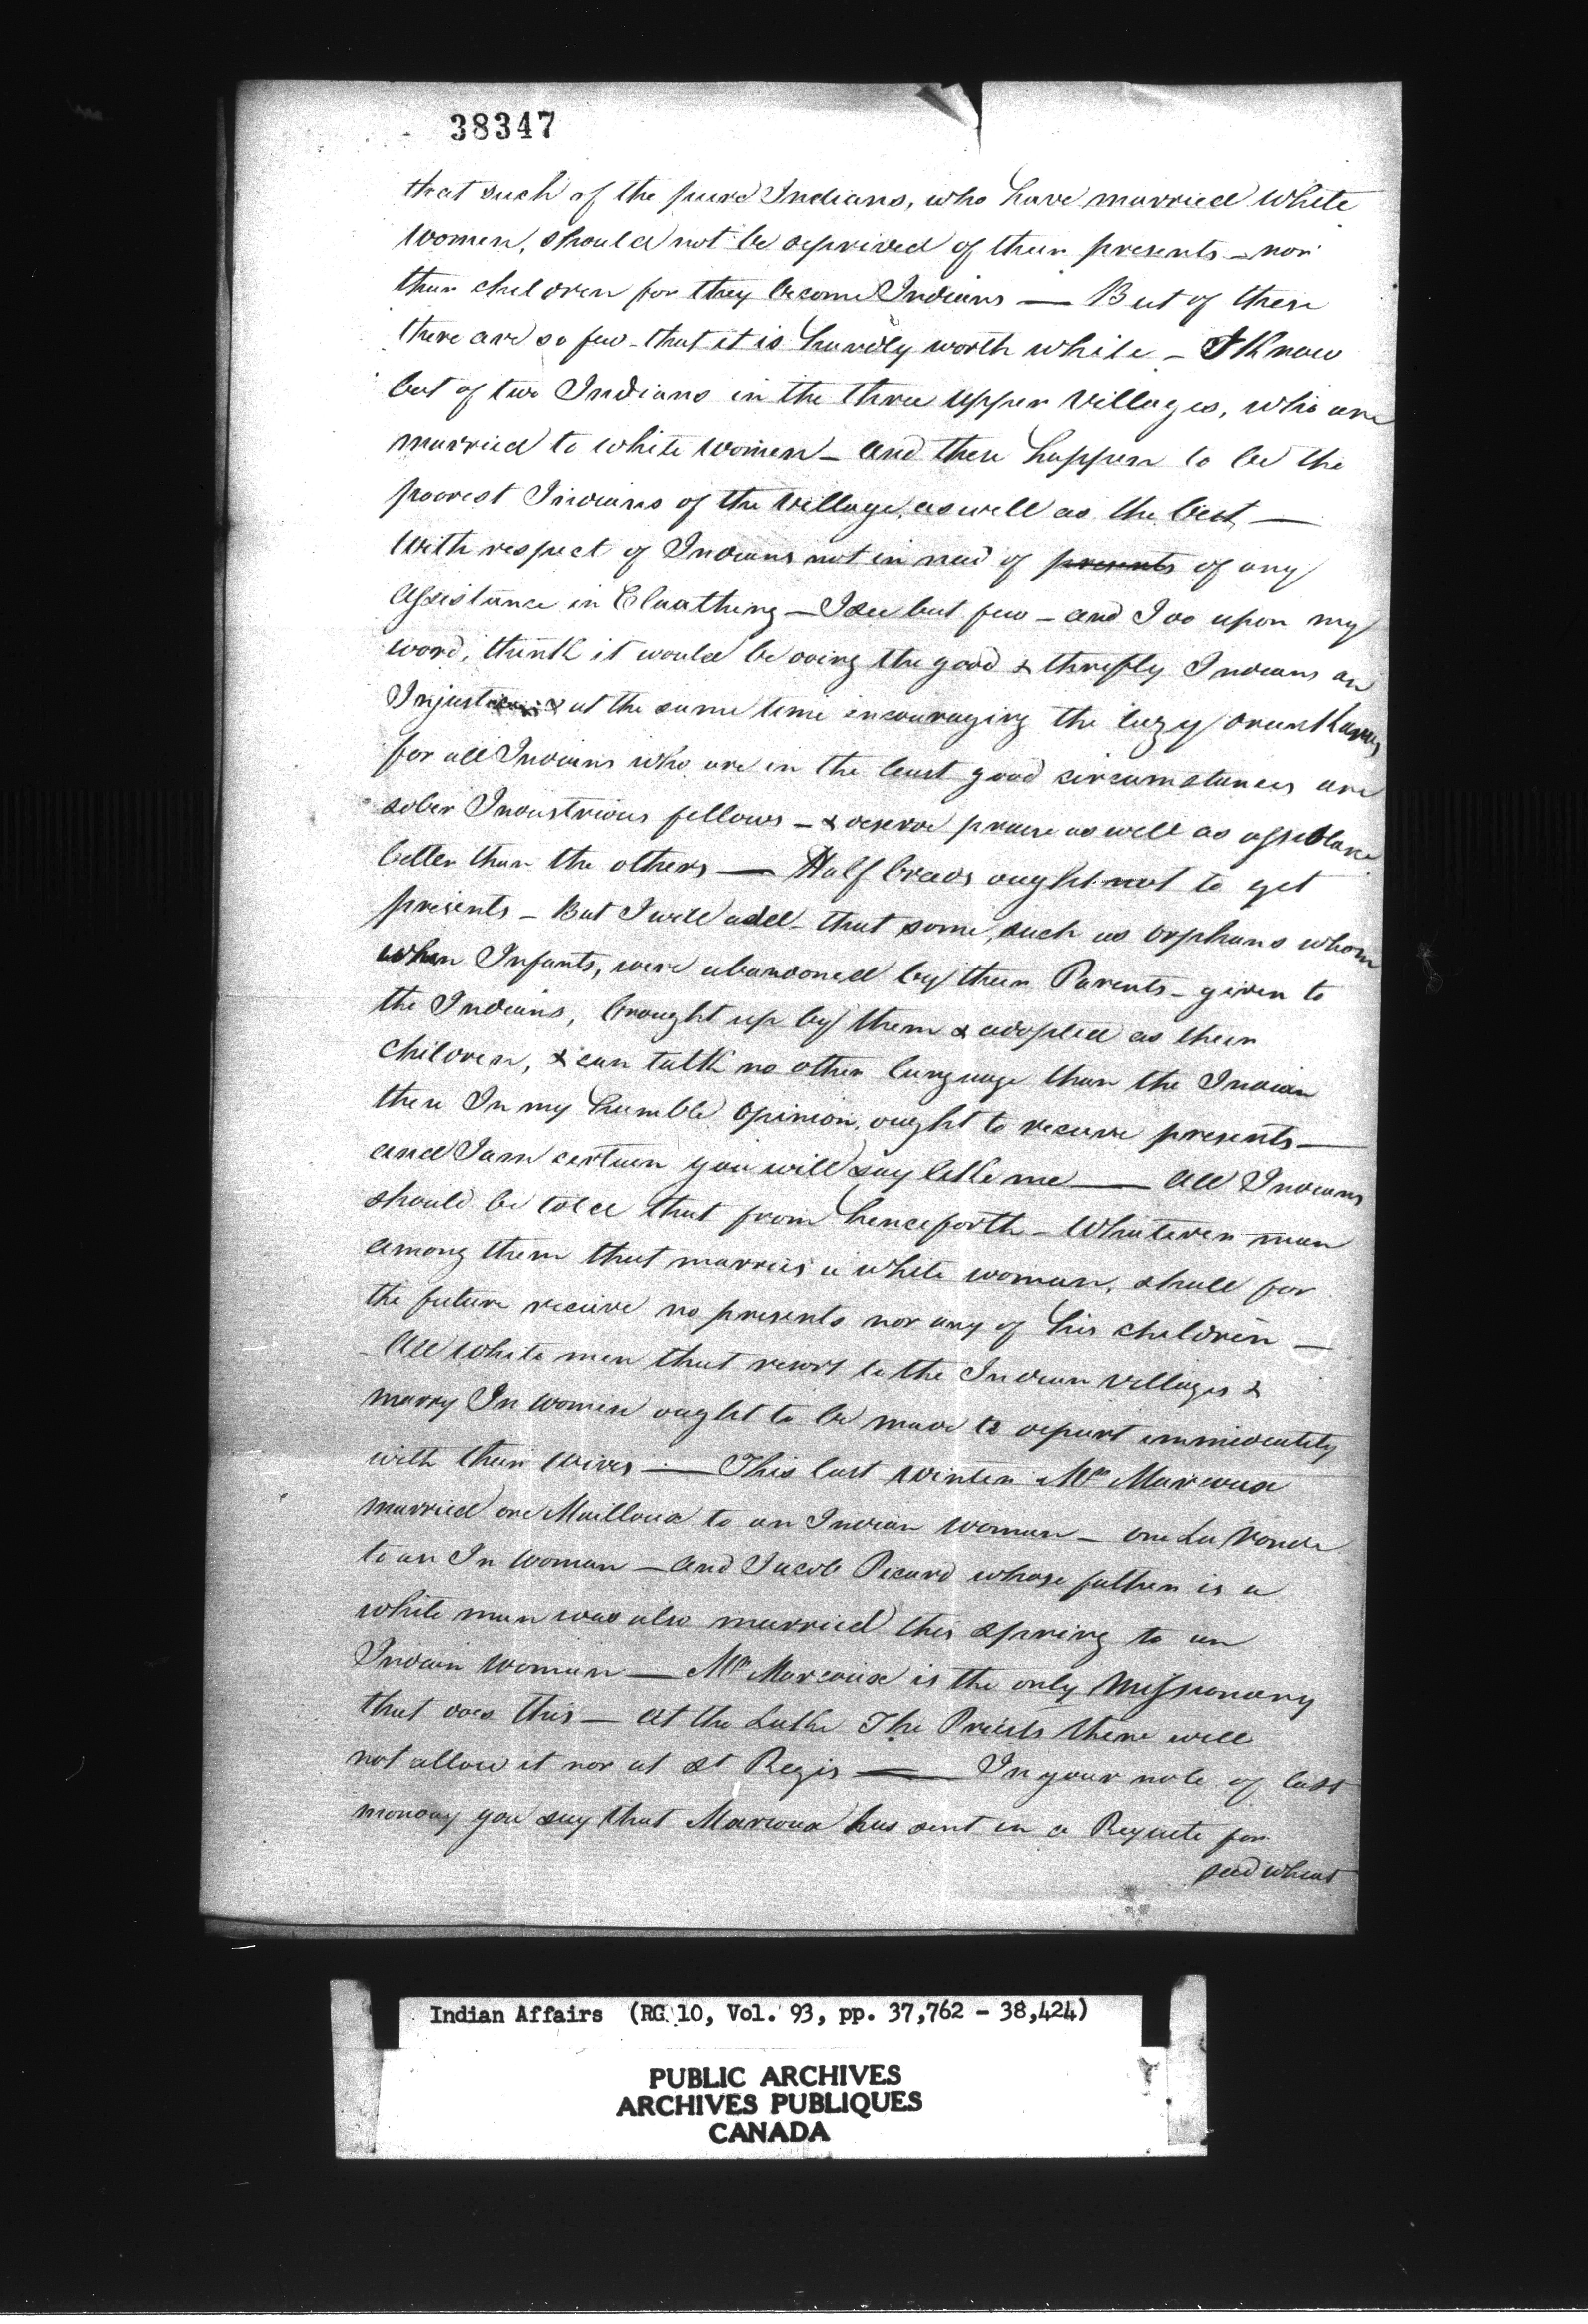 38347
that such of the pure Indians, who have married white
women, should not be deprived of their presents – nor
their children for they become Indians — But of these
there are so few – that it is hardly worth while – I know
but of two Indians in the three upper Villages, who are
married to white women – and these happen to be the
poorest Indians of the Village, as well as the best —
With respect of Indians not in need of presents of any
assistance in Cloathing – I see but few – and I do upon my
word, think it would be doing the good & thrifty Indians an
Injustice & at the same time encouraging the lazy drunkards
for all Indians who are in the least good circumstances are
sober Industrious fellows – & deserve praise as well as assistance
better than the others — Half breeds ought not to get
presents – But I will add – that some, such as orphans whom
when Infants, were abandoned by their Parents – given to
the Indians, brought up by them & adopted as their
children, & can talk no other language than the Indian
these In my humble opinion, ought to receive presents —
and I am certain you will say like me — All Indians
should be told that from henceforth – Whatever man
among them that marries a white woman, shall for
the future receive no presents nor any of his children —
– All white men that resort to the Indian villages &
marry In women ought to be made to depart immediately
with their wives — This last winter Mr Marcoux
married one Mailloux to an Indian woman – one La Ronde
to an In woman – and Jacob Picard whose father is a
white man was also married this spring to an
Indian woman — Mr Marcoux is the only Missionary
that does this – At the Lake The Priests there will
not allow it nor at St Regis — In your note of last
monday you say that Marcoux has sent in a Requete for
seed wheat
Indian Affairs (RG 10, Vol. 93, pp. 37,762 - 38,424)
PUBLIC ARCHIVES
ARCHIVES PUBLIQUES
CANADA